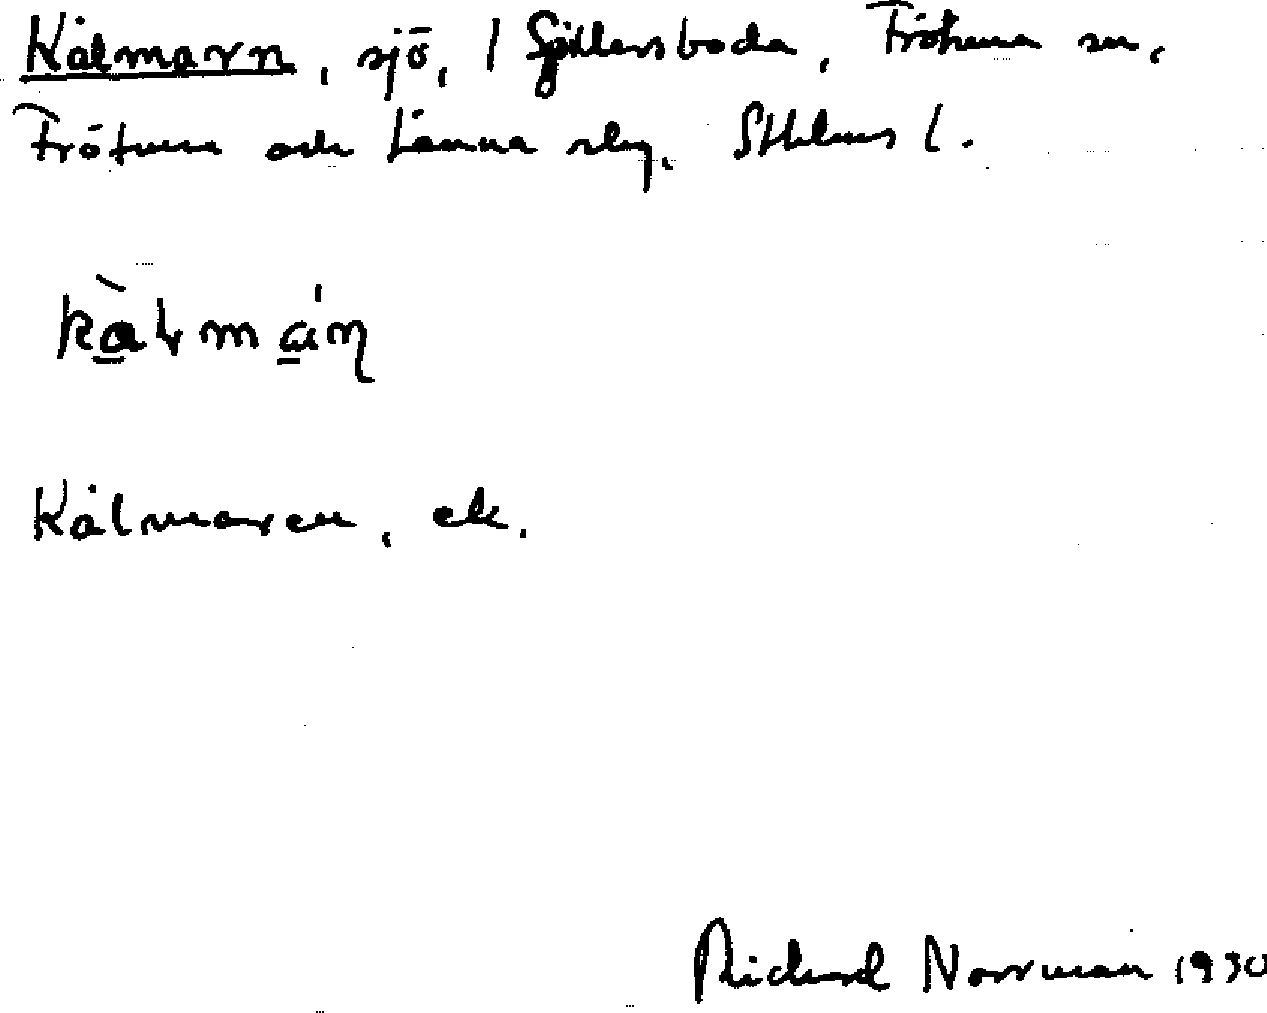 Kålmarn, sjö, / Spillersboda, Frötuna sn,
Frötuna och Länna slg. Sthlms l.
Kålmaren, ek.
Richard Norrman 1930